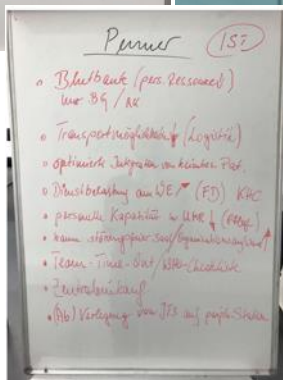 Penner IST
Blutbank (pers. Ressourcen)
nur BG / AK
Transportmöglichkeit ↓ (Logistik)
optimierte Integration von kleinen
Dienstbelastung am WE ↗ (FD) KAC
personelle Kapazität ↓
kaum störungsfreier Saal/
Team-Time-Out / WHO-Checkliste
Zentraleinkauf
(Ab) Verlegung von ITS auf periph. Station